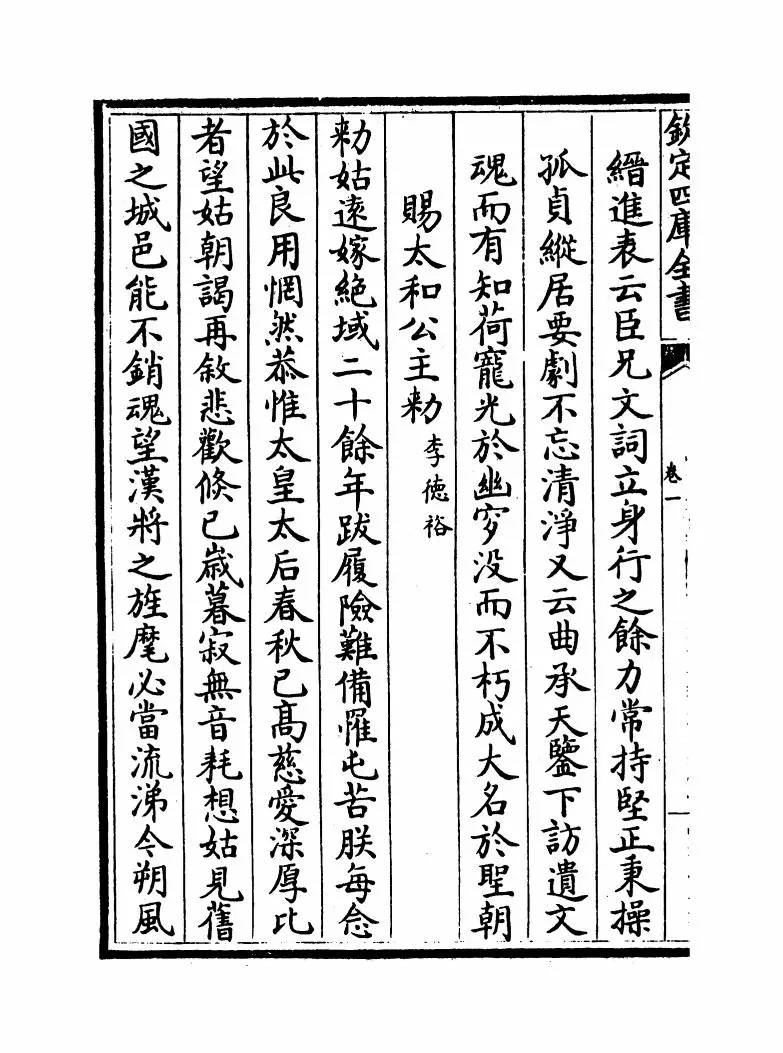 欽定四庫全書
卷一
縉進表云臣兄文詞立身行之餘力常持堅正秉操
孤貞縱居要劇不忘清淨又云曲承天鑒下訪遺文
魂而有知荷寵光於幽穸没而不朽成大名於聖朝
賜太和公主勅李徳裕
勅姑逺嫁絶域二十餘年跋履險難備罹屯苦朕每念
於此良用惘然恭惟太皇太后春秋已髙慈愛深厚比
者望姑朝謁再敘悲歡倐已嵗暮寂無音耗想姑見舊
國之城邑能不銷魂望漢將之旌麾必當流涕今朔風